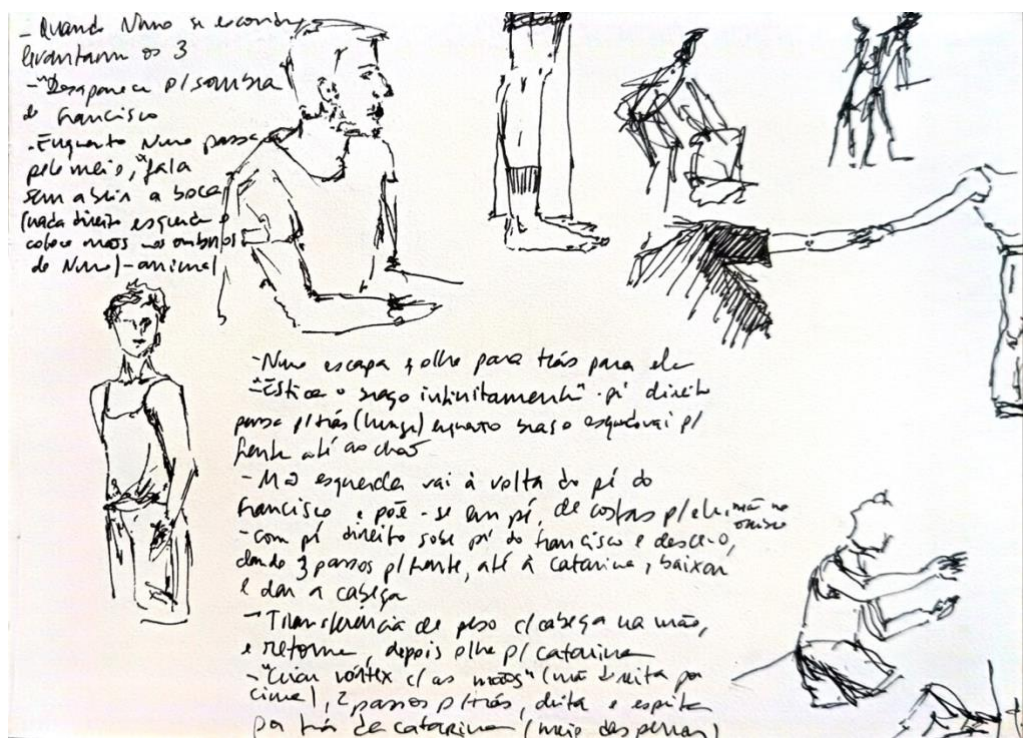 - Quando Nuno se esconde,
levantam os 3
- "Desaparece p/sombra
do Francisco
- Enquanto Nuno passa
pelo meio, "fala
sem abrir a boca
(nada direito esquerdo e
coloco mãos nos ombros
de Nuno) - animal
- Nuno escapa e olho para trás para ele
- "Estica o braço infinitamente" - pé direito
passa p/trás (lunge) enquanto braço esquerdo vai p/
frente até ao chão
- Mão esquerda vai à volta do pé do
Francisco e põe-se em pé, de costas p/ele, mão no
- Com pé direito sobe pé do Francisco e desce-o,
dando 3 passos p/frente, até à Catarina, baixar
e dar a cabeça
- Transferência de peso c/cabeça na mão,
e retorna, depois olha p/ Catarina
- "Criar vórtex c/ as mãos" (mão direita por
cima), 2 passos p/trás, deita e espreita
por trás da Catarina (meio das pernas)